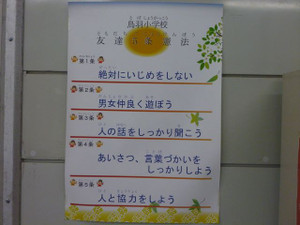 鳥羽小学校
友達五条憲法
第1条
絶対にいじめをしない
第2条
男女仲良く遊ぼう
第3条
人の話をしっかり聞こう
第4条
あいさつ、言葉づかいを
しっかりしよう
第5条
人と協力をしよう